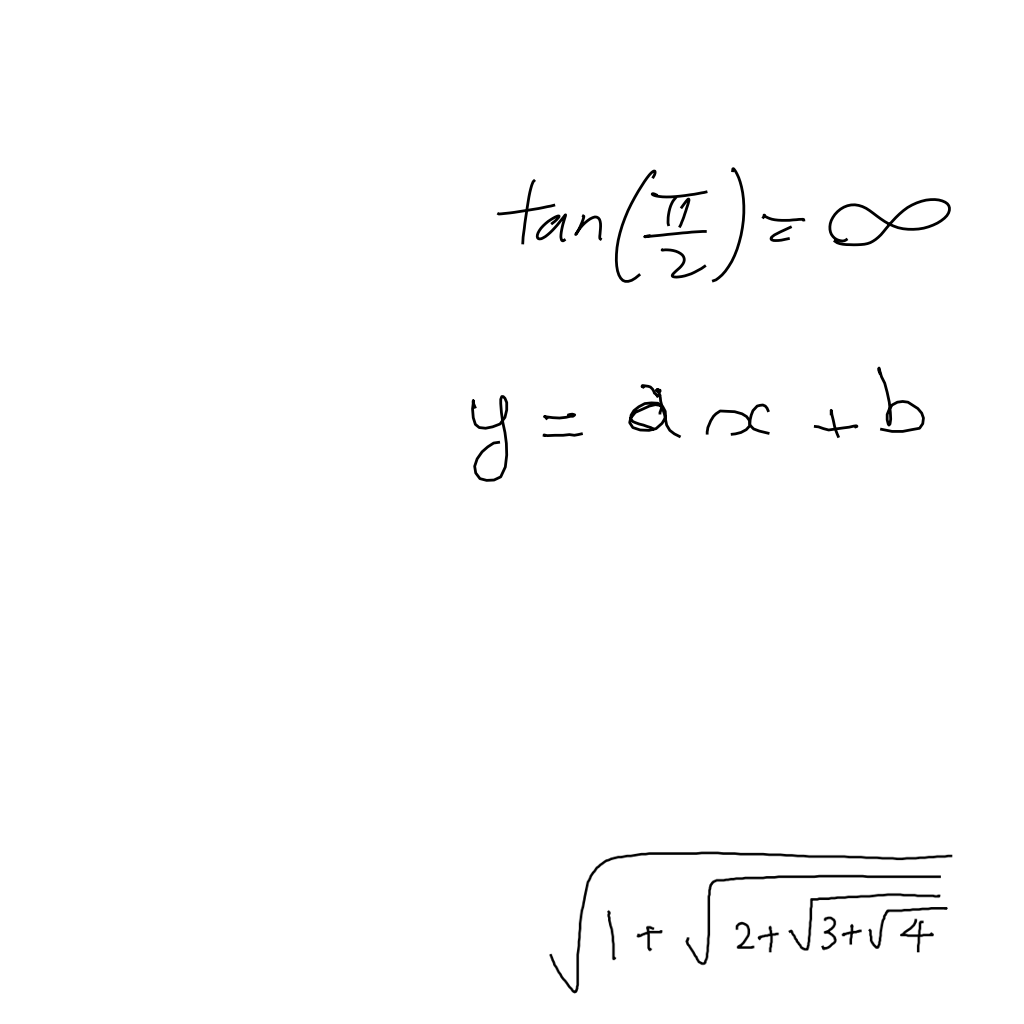 tan(π/2) = ∞
y = ax + b
√(1+√(2+√(3+√4)))